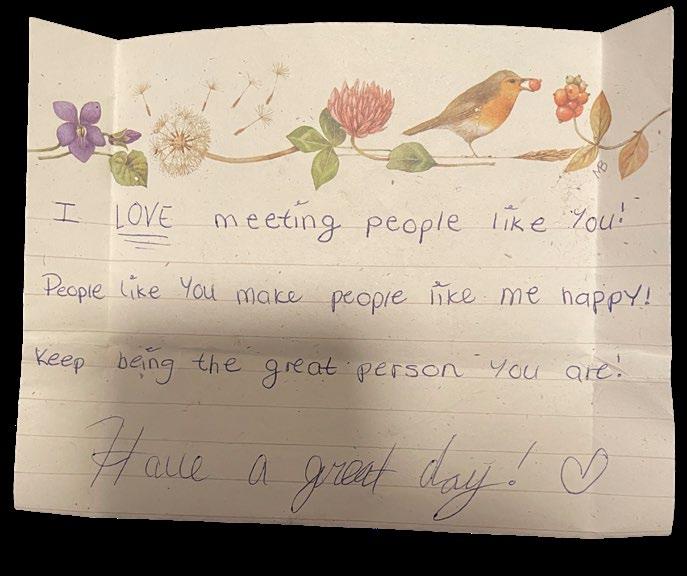 MB
I LOVE meeting people like you!
People like you make people like me happy!
Keep being the great person you are!
Have a great day! ♡